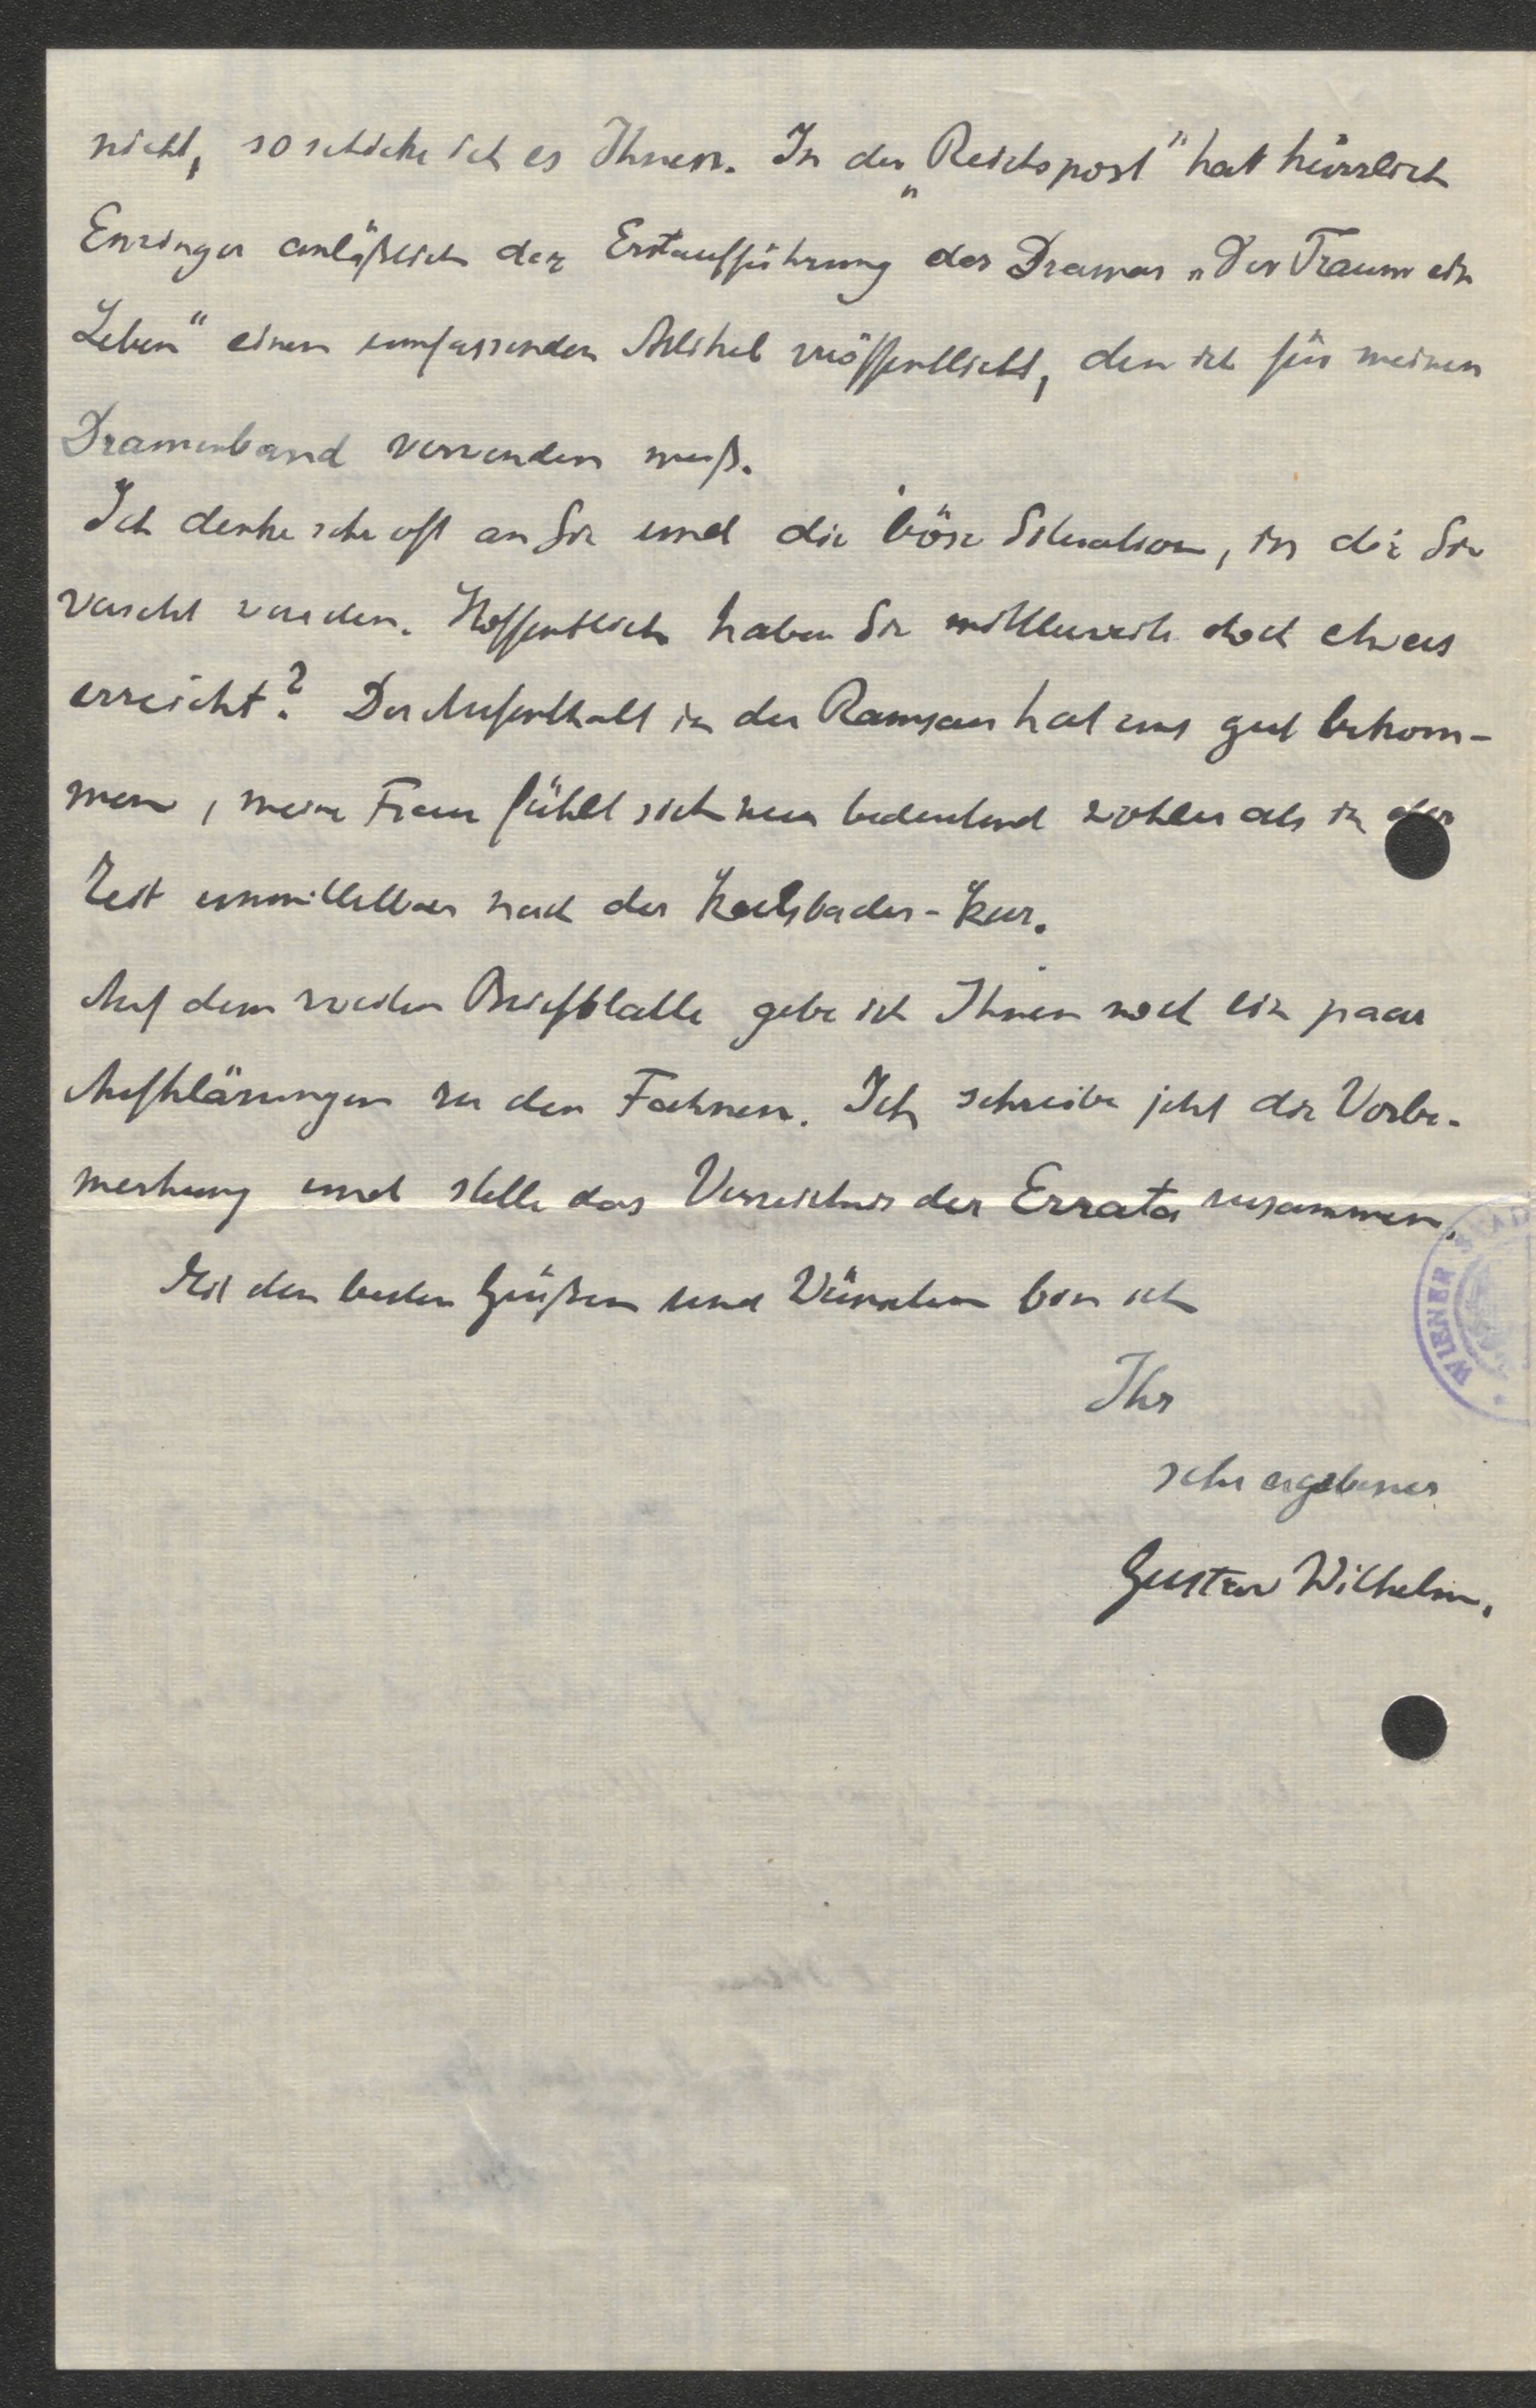 nicht, so schicke ich es Ihnen. In der „Reichspost" hat kürzlich
Enzinger anläßlich der Erstaufführung des Dramas „Der Traum ein
Leben" einen umfassenden Artikel veröffentlicht, den ich für meinen
Dramenband verwenden muß.
Ich denke sehr oft an Sie und die böse Situation, in die Sie
versetzt wurden. Hoffentlich haben Sie mittlerweile doch etwas
erreicht? Der Aufenthalt in der Ramsau hat uns gut bekom-
men, meine Frau fühlt sich nun bedeutend wohler als in der
Zeit unmittelbar nach der Karlsbader-Kur.
Auf dem zweiten Briefblatte gebe ich Ihnen noch ein paar
Aufklärungen zu den Fahnen. Ich schreibe jetzt die Vorbe-
merkung und stelle das Verzeichnis der Errata zusammen.
Mit den besten Grüßen und Wünschen bin ich
Ihr
sehr ergebener
Gustav Wilhelm.
WIENER STAD